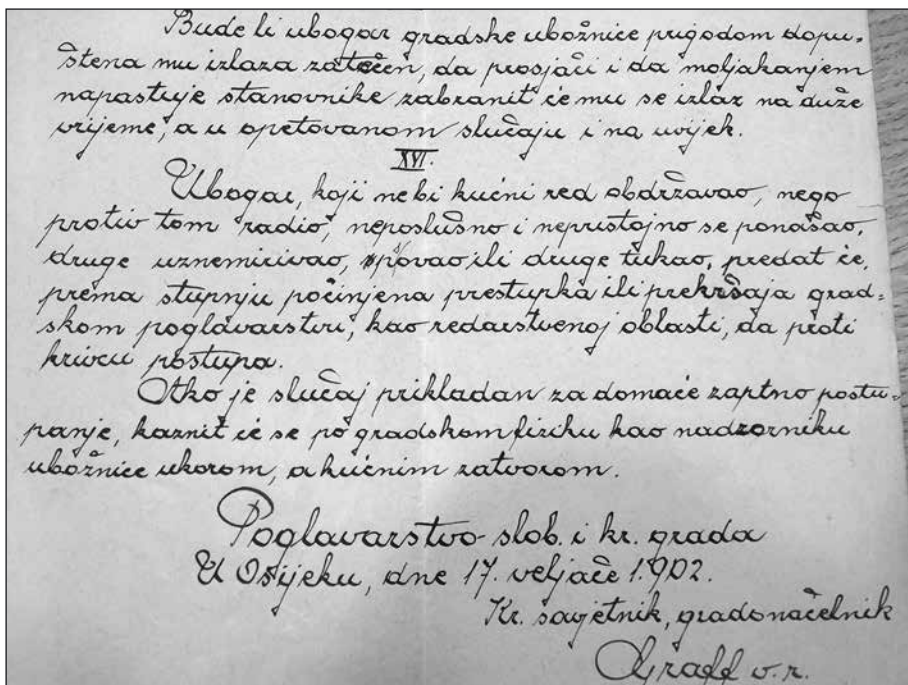 Bude li ubogar gradske ubožnice prigodom dopu-
štena mu izlaza zatečen, da prosjači i da moljakanjem
napastuje stanovnike zabranit će mu se izlaz na duže
vrijeme, a u opetovanom slučaju i na uvijek.
XVI.
Ubogar, koji nebi kućni red obdržavao, nego
protiv tom radio, neposlušno i nepristojno se ponašao,
druge uznemirivao, psovao ili druge tukao, predat će,
prema stupnju počinjena prestupka ili prekršaja grad-
skom poglavarstvu, kao redarstvenoj oblasti, da proti
krivcu postupa.
Ako je slučaj prikladan za domaće zaptno postu-
panje, kaznit će se po gradskom fiziku kao nadzorniku
ubožnice ukorom, a kućnim zatvorom.
Poglavarstvo slob. i kr. grada
U Osijeku, dne 17. veljače 1902.
Kr. savjetnik, gradonačelnik
Graff v. r.